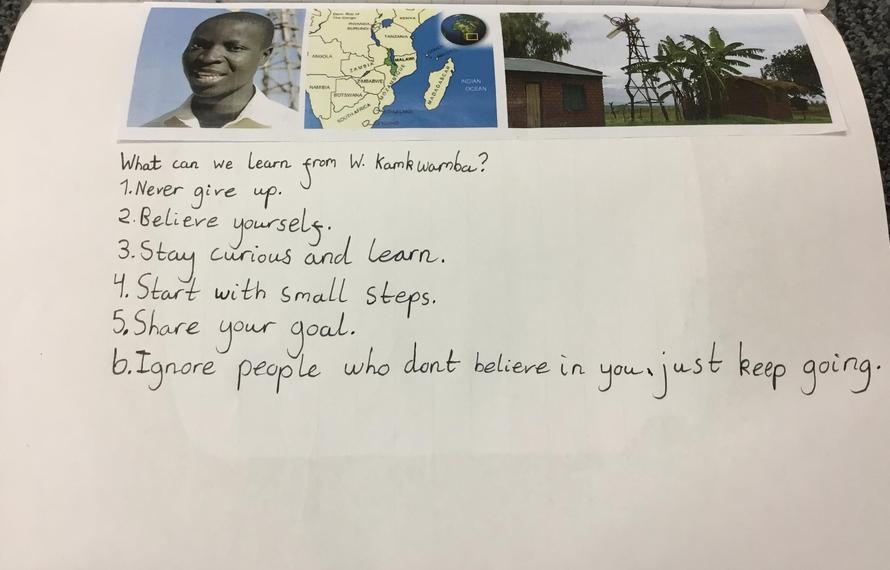 Dem. Rep. of
The Congo
RWANDA
BURUNDI
KENYA
TANZANIA
ANGOLA
ZAMBIA
MALAWI
MOZAMBIQUE
ZIMBABWE
NAMIBIA
BOTSWANA
MADAGASCAR
INDIAN
OCEAN
SOUTH AFRICA
What can we learn from W. Kamkwamba?
1. Never give up.
2. Believe yourself.
3. Stay curious and learn.
4. Start with small steps.
5. Share your goal.
6. Ignore people who dont believe in you, just keep going.